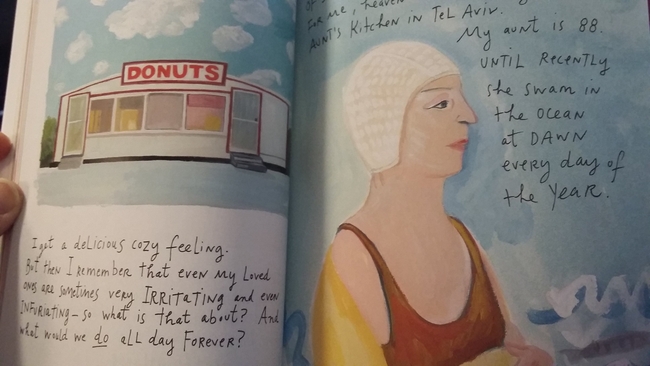 DONUTS
I got a delicious cozy feeling.
But then I remember that even my loved
ones are sometimes very IRRITATING and even
INFURIATING – so what is that about? And
what would we do all day Forever?
For me, heaven
AUNT'S KITCHEN in TEL AVIV.
My aunt is 88.
UNTIL RECENTLY
she swam in
the OCEAN
at DAWN
every day of
the YEAR.